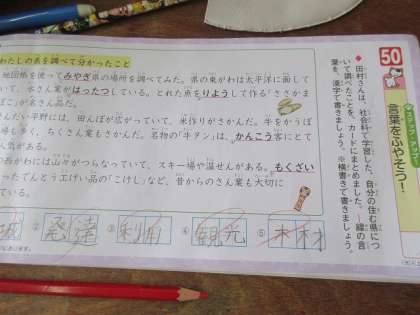 50
ステップアップ!
言葉をふやそう!
田村さんは、社会科で学習した、自分の住む県につ
いて調べたことを、カードにまとめました。―線の言
葉を、漢字で書きましょう。※横書きで書きましょう。
わたしの県を調べて分かったこと
地図帳を使ってみやぎ県の場所を調べてみた。県の東がわは太平洋に面して
いて、水さん業がはったつしている。とれた魚をりようして作る「ささかま
ぼこ」が名さん品だ。
だんだい平野には、田んぼが広がっていて、米作りがさかんだ。牛をかうぼ
場も多く、ちくさん業もさかんだ。名物の「牛タン」は、かんこう客にとて
人気がある。
西がわには山々がつらなっていて、スキー場や温せんがある。もくざい
ったてんとう工げい品の「こけし」など、昔からのさん業も大切に
ている。
城
② 発達
③ 利用
④ 観光
⑤ 木材